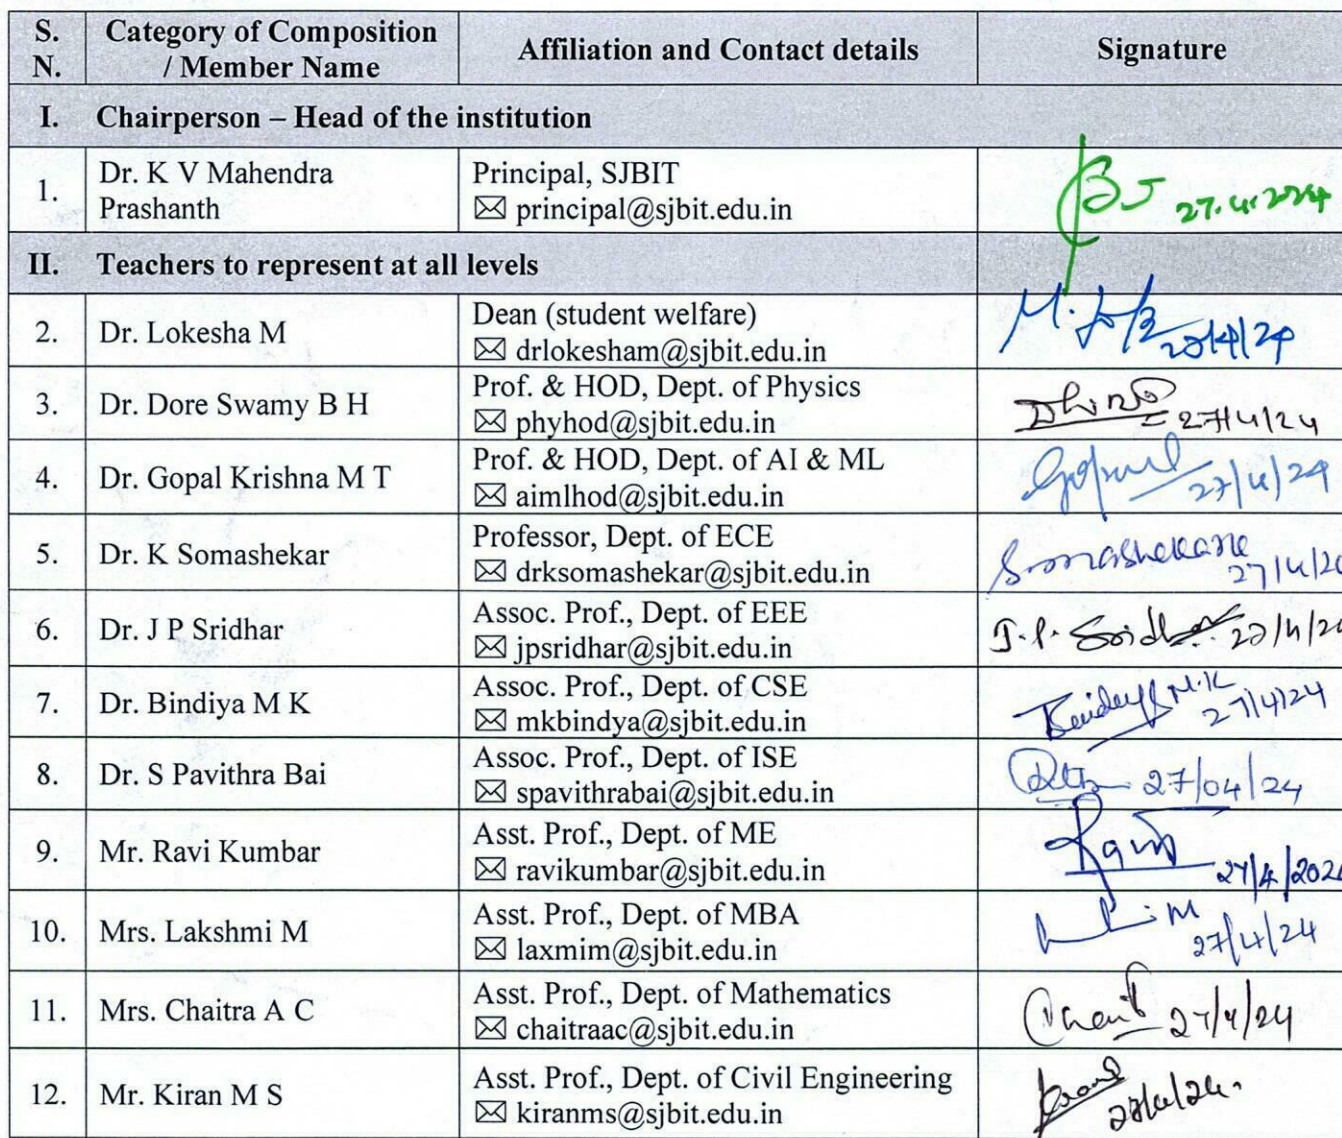 S. N. Category of Composition / Member Name Affiliation and Contact details Signature
I. Chairperson – Head of the institution
1. Dr. K V Mahendra Prashanth Principal, SJBIT
✉ principal@sjbit.edu.in
27.4.2024
II. Teachers to represent at all levels
2. Dr. Lokesha M Dean (student welfare)
✉ drlokesham@sjbit.edu.in
3. Dr. Dore Swamy B H Prof. & HOD, Dept. of Physics
✉ phyhod@sjbit.edu.in 27/4/24
4. Dr. Gopal Krishna M T Prof. & HOD, Dept. of AI & ML
✉ aimlhod@sjbit.edu.in 27/4/24
5. Dr. K Somashekar Professor, Dept. of ECE
✉ drksomashekar@sjbit.edu.in
6. Dr. J P Sridhar Assoc. Prof., Dept. of EEE J.P. Sridhar
✉ jpsridhar@sjbit.edu.in
7. Dr. Bindiya M K Assoc. Prof., Dept. of CSE M.K
✉ mkbindya@sjbit.edu.in 27/4/24
8. Dr. S Pavithra Bai Assoc. Prof., Dept. of ISE 27/04/24
✉ spavithrabai@sjbit.edu.in
9. Mr. Ravi Kumbar Asst. Prof., Dept. of ME
✉ ravikumbar@sjbit.edu.in
10. Mrs. Lakshmi M Asst. Prof., Dept. of MBA
✉ laxmim@sjbit.edu.in 27/4/24
11. Mrs. Chaitra A C Asst. Prof., Dept. of Mathematics
✉ chaitraac@sjbit.edu.in 27/4/24
12. Mr. Kiran M S Asst. Prof., Dept. of Civil Engineering
✉ kiranms@sjbit.edu.in